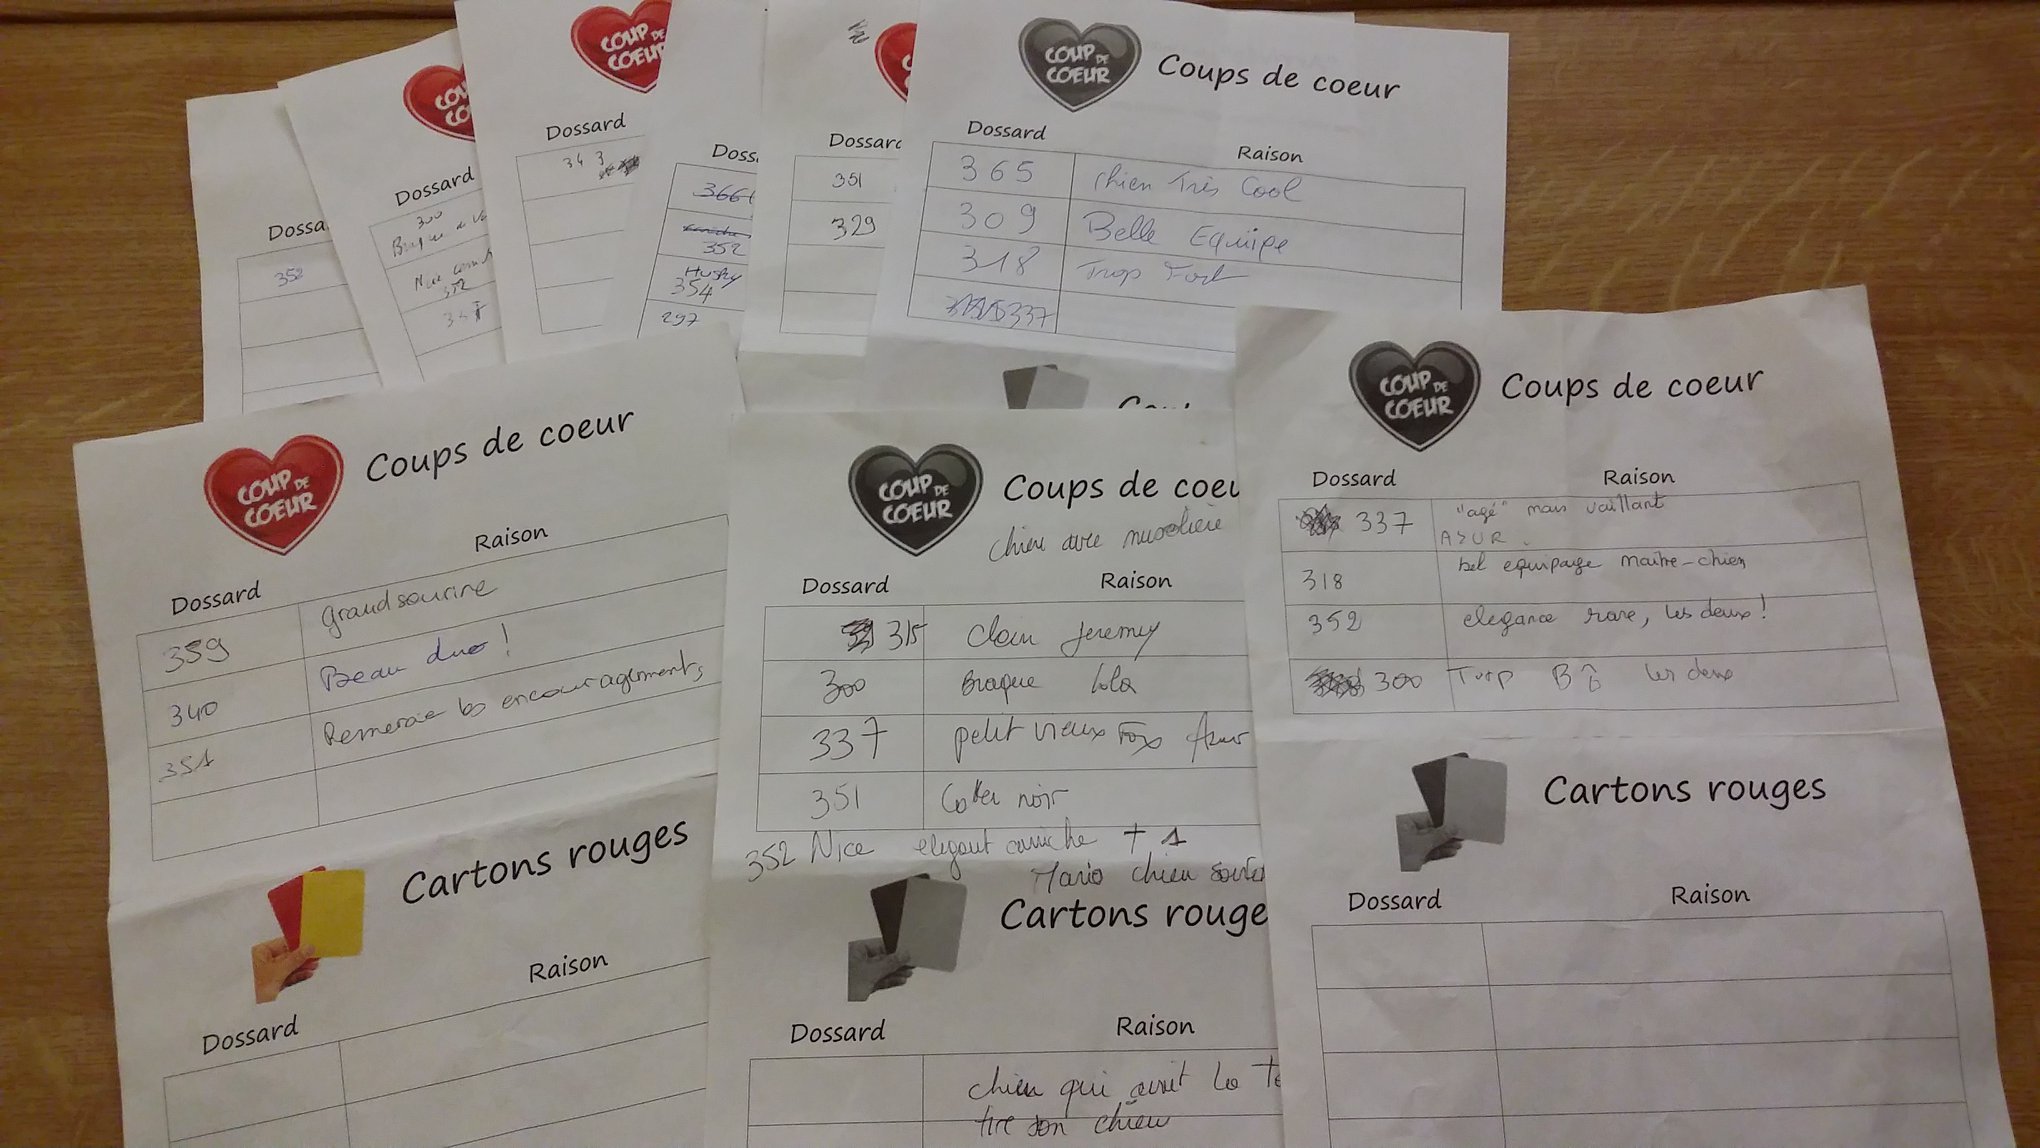 Dossa
352
Dossard
300
352
COUP DE
COEUR
Dossard
343
Doss
366
352
Husky
354
297
Dossard
351
329
COUP DE
COEUR
Coups de coeur
Dossard
Raison
365 chien Très Cool
309 Belle Equipe
318 Trop Fort
337
COUP DE
COEUR
Coups de coeur
Dossard
Raison
359 grand sourire
340 Beau duo !
351 Remercie les encouragements
Cartons rouges
Dossard
Raison
COUP DE
COEUR
Coups de coeu
chien avec muselière
Dossard
Raison
315 Clain Jeremy
300 Braque Lola
337 petit vieux Fox Azur
351 Colley noir
352 Nice elegant caniche + 1
Mario chien
Cartons rouge
Dossard
Raison
chien qui avait la te
tire son chien
COUP DE
COEUR
Coups de coeur
Dossard
Raison
337 "agé" mais vaillant
AZUR.
318 bel equipage maitre-chien
352 elegance rare, les deux !
300 Trop Bô les deux
Cartons rouges
Dossard
Raison